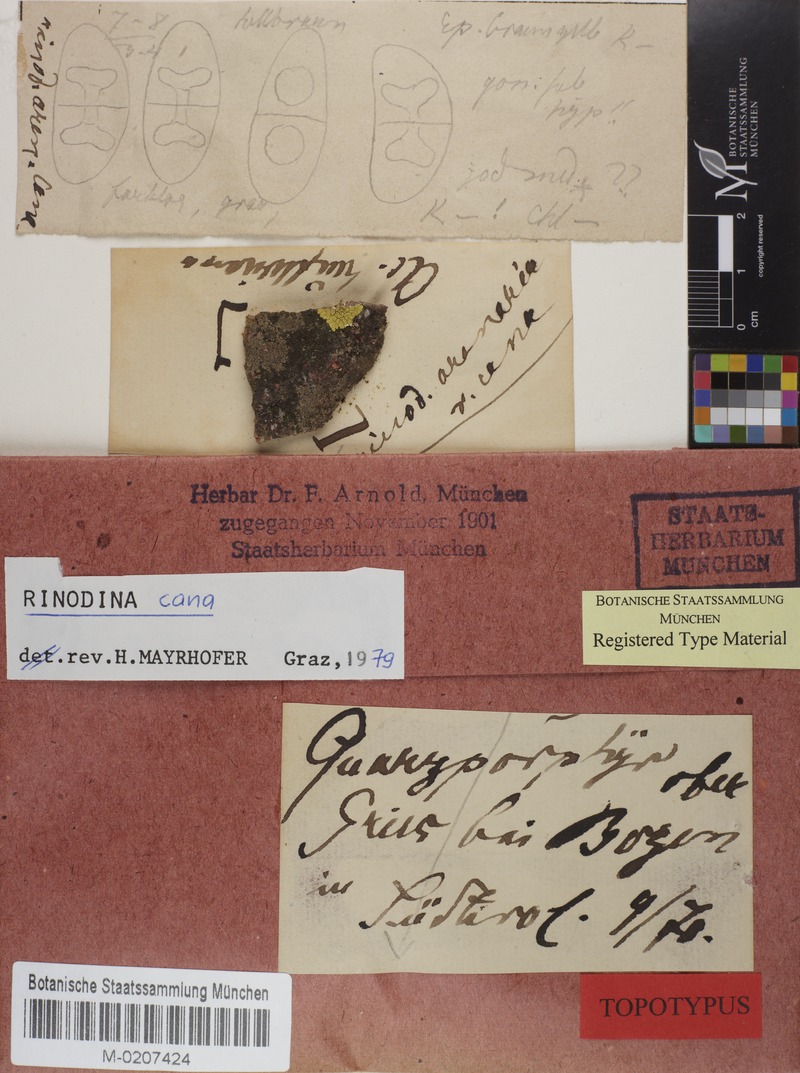 7-8
hellbraun
Ep. braungelb K-
hyp
K - ! Chl -
Rinod. aren. cana
BOTANISCHE
STAATSSAMMLUNG
MÜNCHEN
copyright reserved
0 1 2
cm
Rinod. arenaria
v. cana
Herbar Dr. F. Arnold, München
zugegangen November 1901
Staatsherbarium München
STAATS-
HERBARIUM
MÜNCHEN
RINODINA cana
det.rev.H.MAYRHOFER Graz,1979
BOTANISCHE STAATSSAMMLUNG
MÜNCHEN
Registered Type Material
Quarzporphyr ober
Gries bei Bozen
in Südtirol. 9/
Botanische Staatssammlung München
M-0207424
TOPOTYPUS